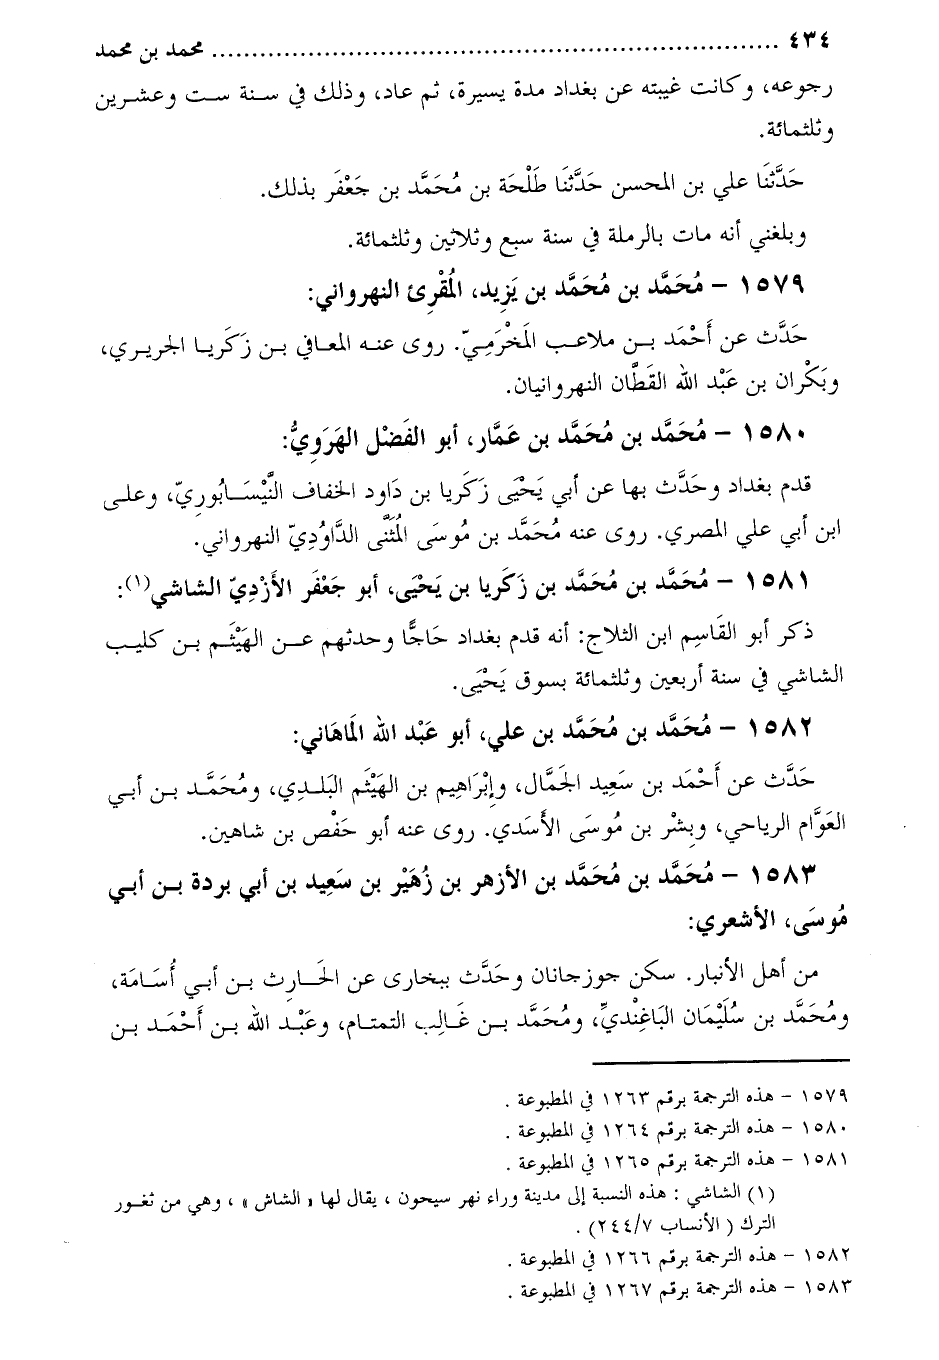 ٤٣٤ ........................................................................ محمد بن محمد
رجوعه، وكانت غيبته عن بغداد مدة يسيرة، ثم عاد، وذلك في سنة ست وعشرين
وثلثمائة.
حَدَّثَنَا علي بن المحسن حَدَّثَنَا طَلْحَة بن مُحَمَّد بن جَعْفَر بذلك.
وبلغني أنه مات بالرملة في سنة سبع وثلاثين وثلثمائة.
١٥٧٩ – مُحَمَّد بن مُحَمَّد بن يَزِيد، المُقْرِئ النهرواني:
حَدَّث عن أَحْمَد بن ملاعب المَخْرَمِيّ. روى عنه المعافي بن زكريا الجريري،
وبَكْران بن عَبْد الله القَطَّان النهروانيان.
١٥٨٠ – مُحَمَّد بن مُحَمَّد بن عَمَّار، أبو الفَضْل الهَرَوِيُّ:
قدم بغداد وحَدَّث بها عن أبي يَحْيَى زَكَريا بن دَاود الخفاف النَّيْسَابُورِيّ، وعلى
ابن أبي علي المصري. روى عنه مُحَمَّد بن مُوسَى المُثَنَّى الدَّاوُدِيّ النهرواني.
١٥٨١ – مُحَمَّد بن مُحَمَّد بن زَكَريا بن يَحْيَى، أبو جَعْفَر الأزْدِيّ الشاشي(١):
ذكر أبو القَاسِم ابن الثلاج: أنه قدم بغداد حَاجًّا وحدثهم عن الهَيْثَم بن كليب
الشاشي في سنة أربعين وثلثمائة بسوق يَحْيَى.
١٥٨٢ – مُحَمَّد بن مُحَمَّد بن علي، أبو عَبْد الله المَاهَاني:
حَدَّث عن أَحْمَد بن سَعِيد الجَمَّال، وإِبْرَاهِيم بن الهَيْثَم البَلَدِي، ومُحَمَّد بن أبي
العَوَّام الرياحي، وبِشْر بن مُوسَى الأَسَدي. روى عنه أبو حَفْص بن شاهين.
١٥٨٣ – مُحَمَّد بن مُحَمَّد بن الأزهر بن زُهَيْر بن سَعِيد بن أبي بردة بن أبي
مُوسَى، الأشعري:
من أهل الأنبار. سكن جوزجانان وحَدَّث ببخارى عن الحَارث بن أبي أُسَامَة،
ومُحَمَّد بن سُلَيْمَان البَاغِنْديِّ، ومُحَمَّد بن غَالِب التمتام، وعَبْد الله بن أَحْمَد بن
١٥٧٩ – هذه الترجمة برقم ١٢٦٣ في المطبوعة .
١٥٨٠ – هذه الترجمة برقم ١٢٦٤ في المطبوعة .
١٥٨١ – هذه الترجمة برقم ١٢٦٥ في المطبوعة .
(١) الشاشي : هذه النسبة إلى مدينة وراء نهر سيحون ، يقال لها « الشاش » ، وهي من ثغور
الترك ( الأنساب ٢٤٤/٧) .
١٥٨٢ – هذه الترجمة برقم ١٢٦٦ في المطبوعة .
١٥٨٣ – هذه الترجمة برقم ١٢٦٧ في المطبوعة .